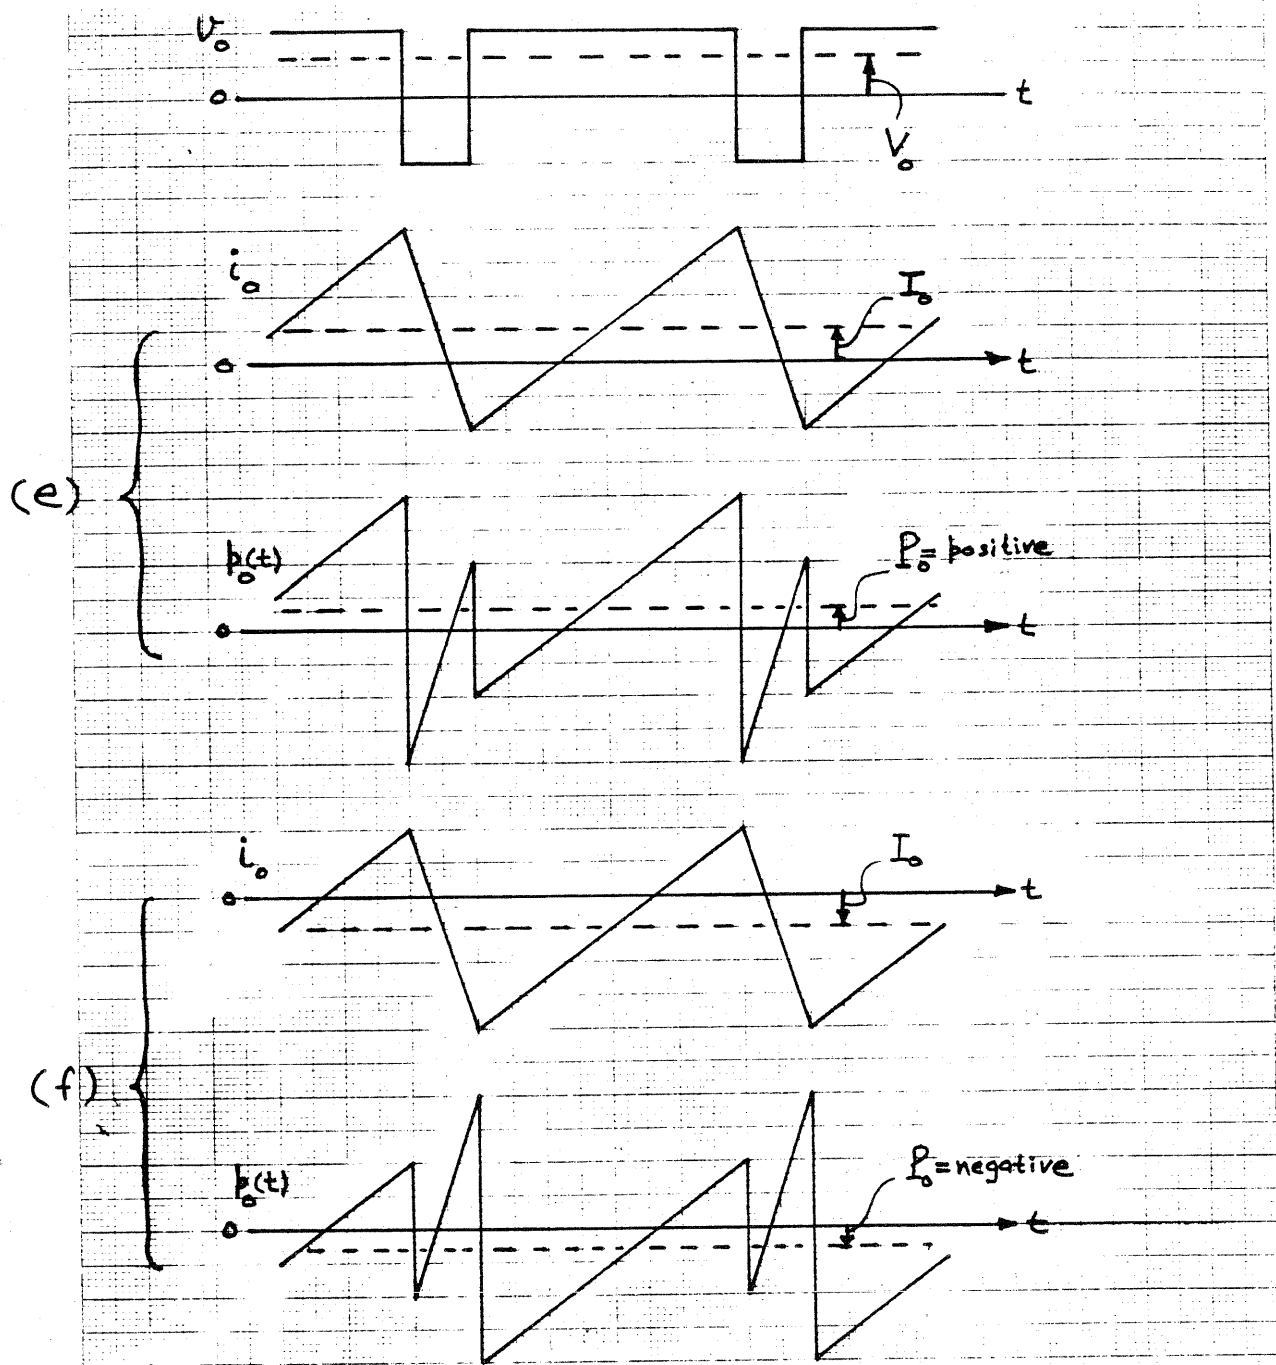 v₀
0
t
V₀
i₀
I₀
0
t
(e)
p₀(t)
P₀ = positive
0
t
i₀
I₀
0
t
(f)
p₀(t)
P₀ = negative
0
t